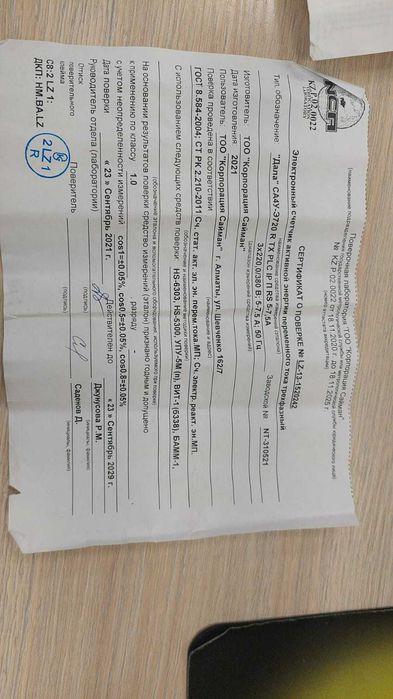 NCA
KZ.P.02.0022
Поверочная лаборатория ТОО "Корпорация Сайман"
№ KZ.P.02.0022 от 18.11.2020 г. до 18.11.2025 г.
СЕРТИФИКАТ О ПОВЕРКЕ № LZ-12-1520242
Электронный счетчик активной энергии переменного тока трехфазный
Тип, обозначение "Дала" СА4У-Э720 R TX PLC IP П RS 5-7,5А
3х220,0/380 В; 5-7,5 А; 50 Гц Заводской № NT-310521
Изготовитель ТОО "Корпорация Сайман"
Дата изготовления: 2021
Пользователь ТОО "Корпорация Сайман" г. Алматы, ул. Шевченко 162/7
Поверка проведена в соответствии
ГОСТ 8.584-2004; СТ РК 2.210-2011 Сч. стат. акт. эл. эн. перем.тока.МП; Сч. электр. реакт. эн.МП.
С использованием следующих средств поверки HS-6303, HS-5300, УПУ-5М (п), ВИТ-1 (5338), БАММ-1,
На основании результатов поверки средство измерений (эталон) признано годным и допущено
к применению по классу 1.0 разряду -
с учетом неопределенности измерений cos1=±0.05%, cos0.5=±0.05%, cos0.8=±0.05%
Дата поверки « 23 » Сентябрь 2021 г. Действителен до « 23 » Сентябрь 2029 г.
Руководитель отдела (лаборатории) (подпись) Даунусова Р.М. (инициалы, фамилия)
Оттиск Поверитель (подпись) Саденов Д. (инициалы, фамилия)
поверительного
клейма
2LZ1
R
С8:2 LZ 1:
ДКП: НМ.ВА.LZ